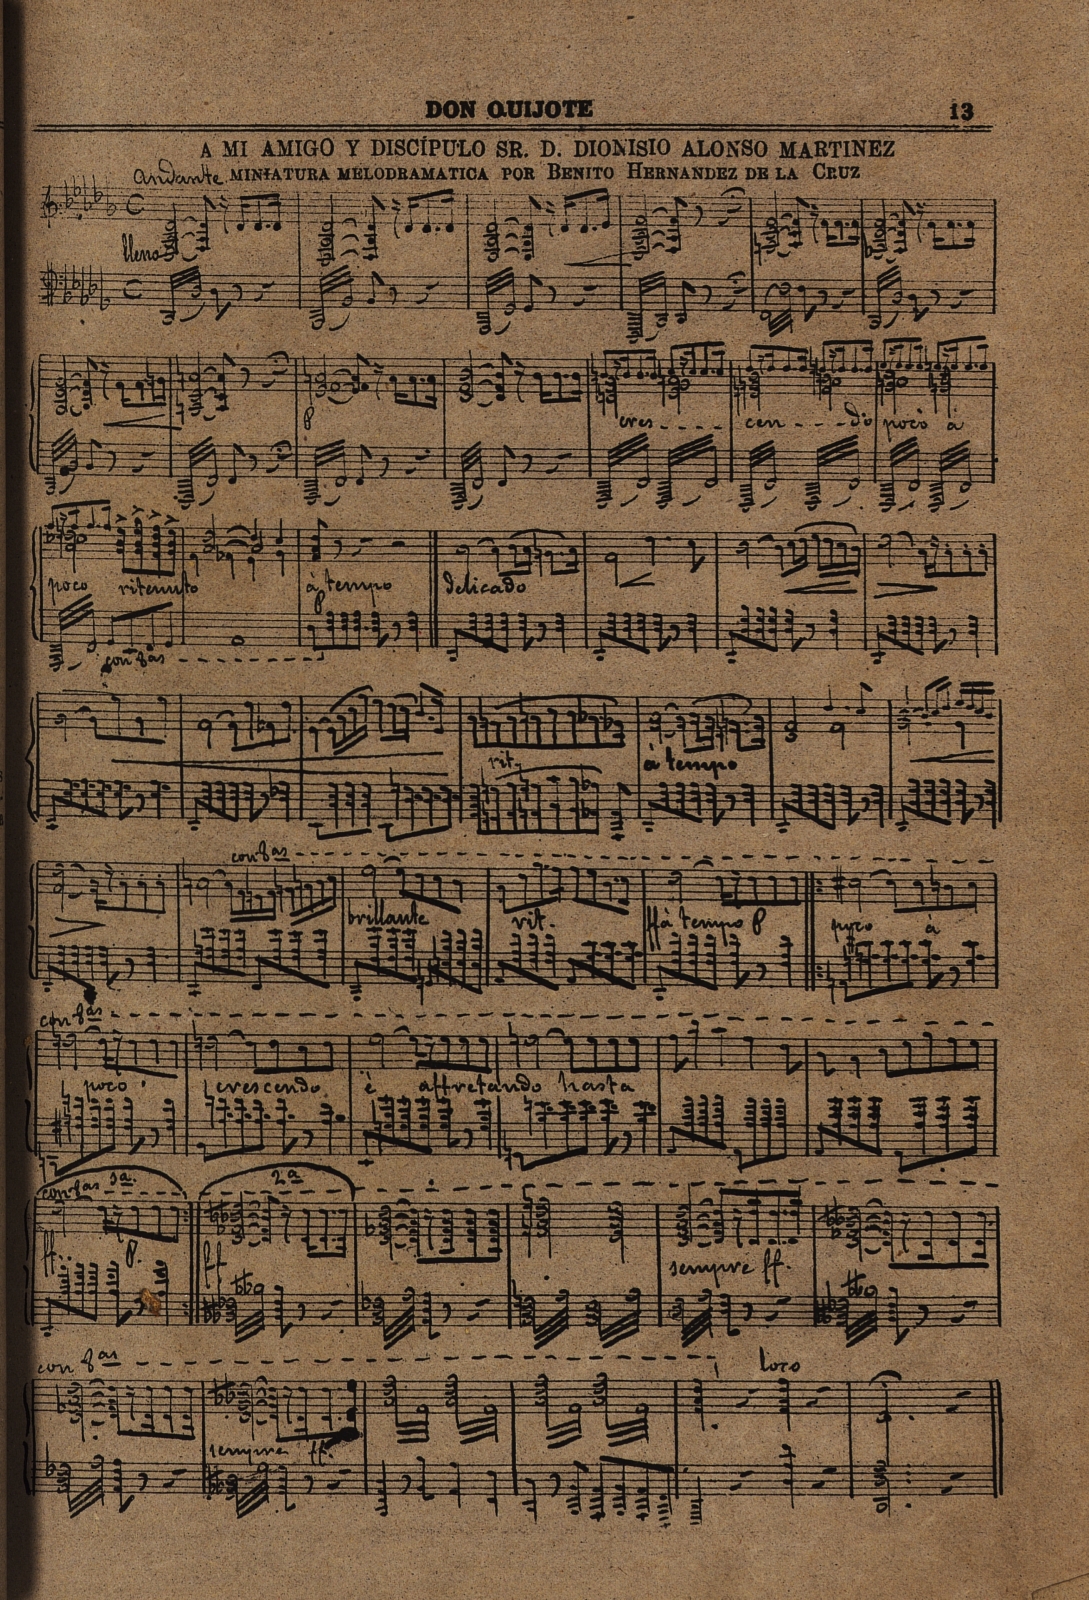 DON QUIJOTE 13
A MI AMIGO Y DISCÍPULO SR. D. DIONISIO ALONSO MARTINEZ
Andante. MINIATURA MELODRAMATICA POR BENITO HERNANDEZ DE LA CRUZ
lleno
p
cres - - - - cen - - - do poco á
poco ritenuto á tempo delicado
p
con 8as
rit. á tempo
con 8as
brillante rit. ff á tempo p poco á
con 8as
poco crescendo é affretando hasta
con 8as 1a. 2a
ff. p. ff sempre ff.
con 8as loco
sempre ff.